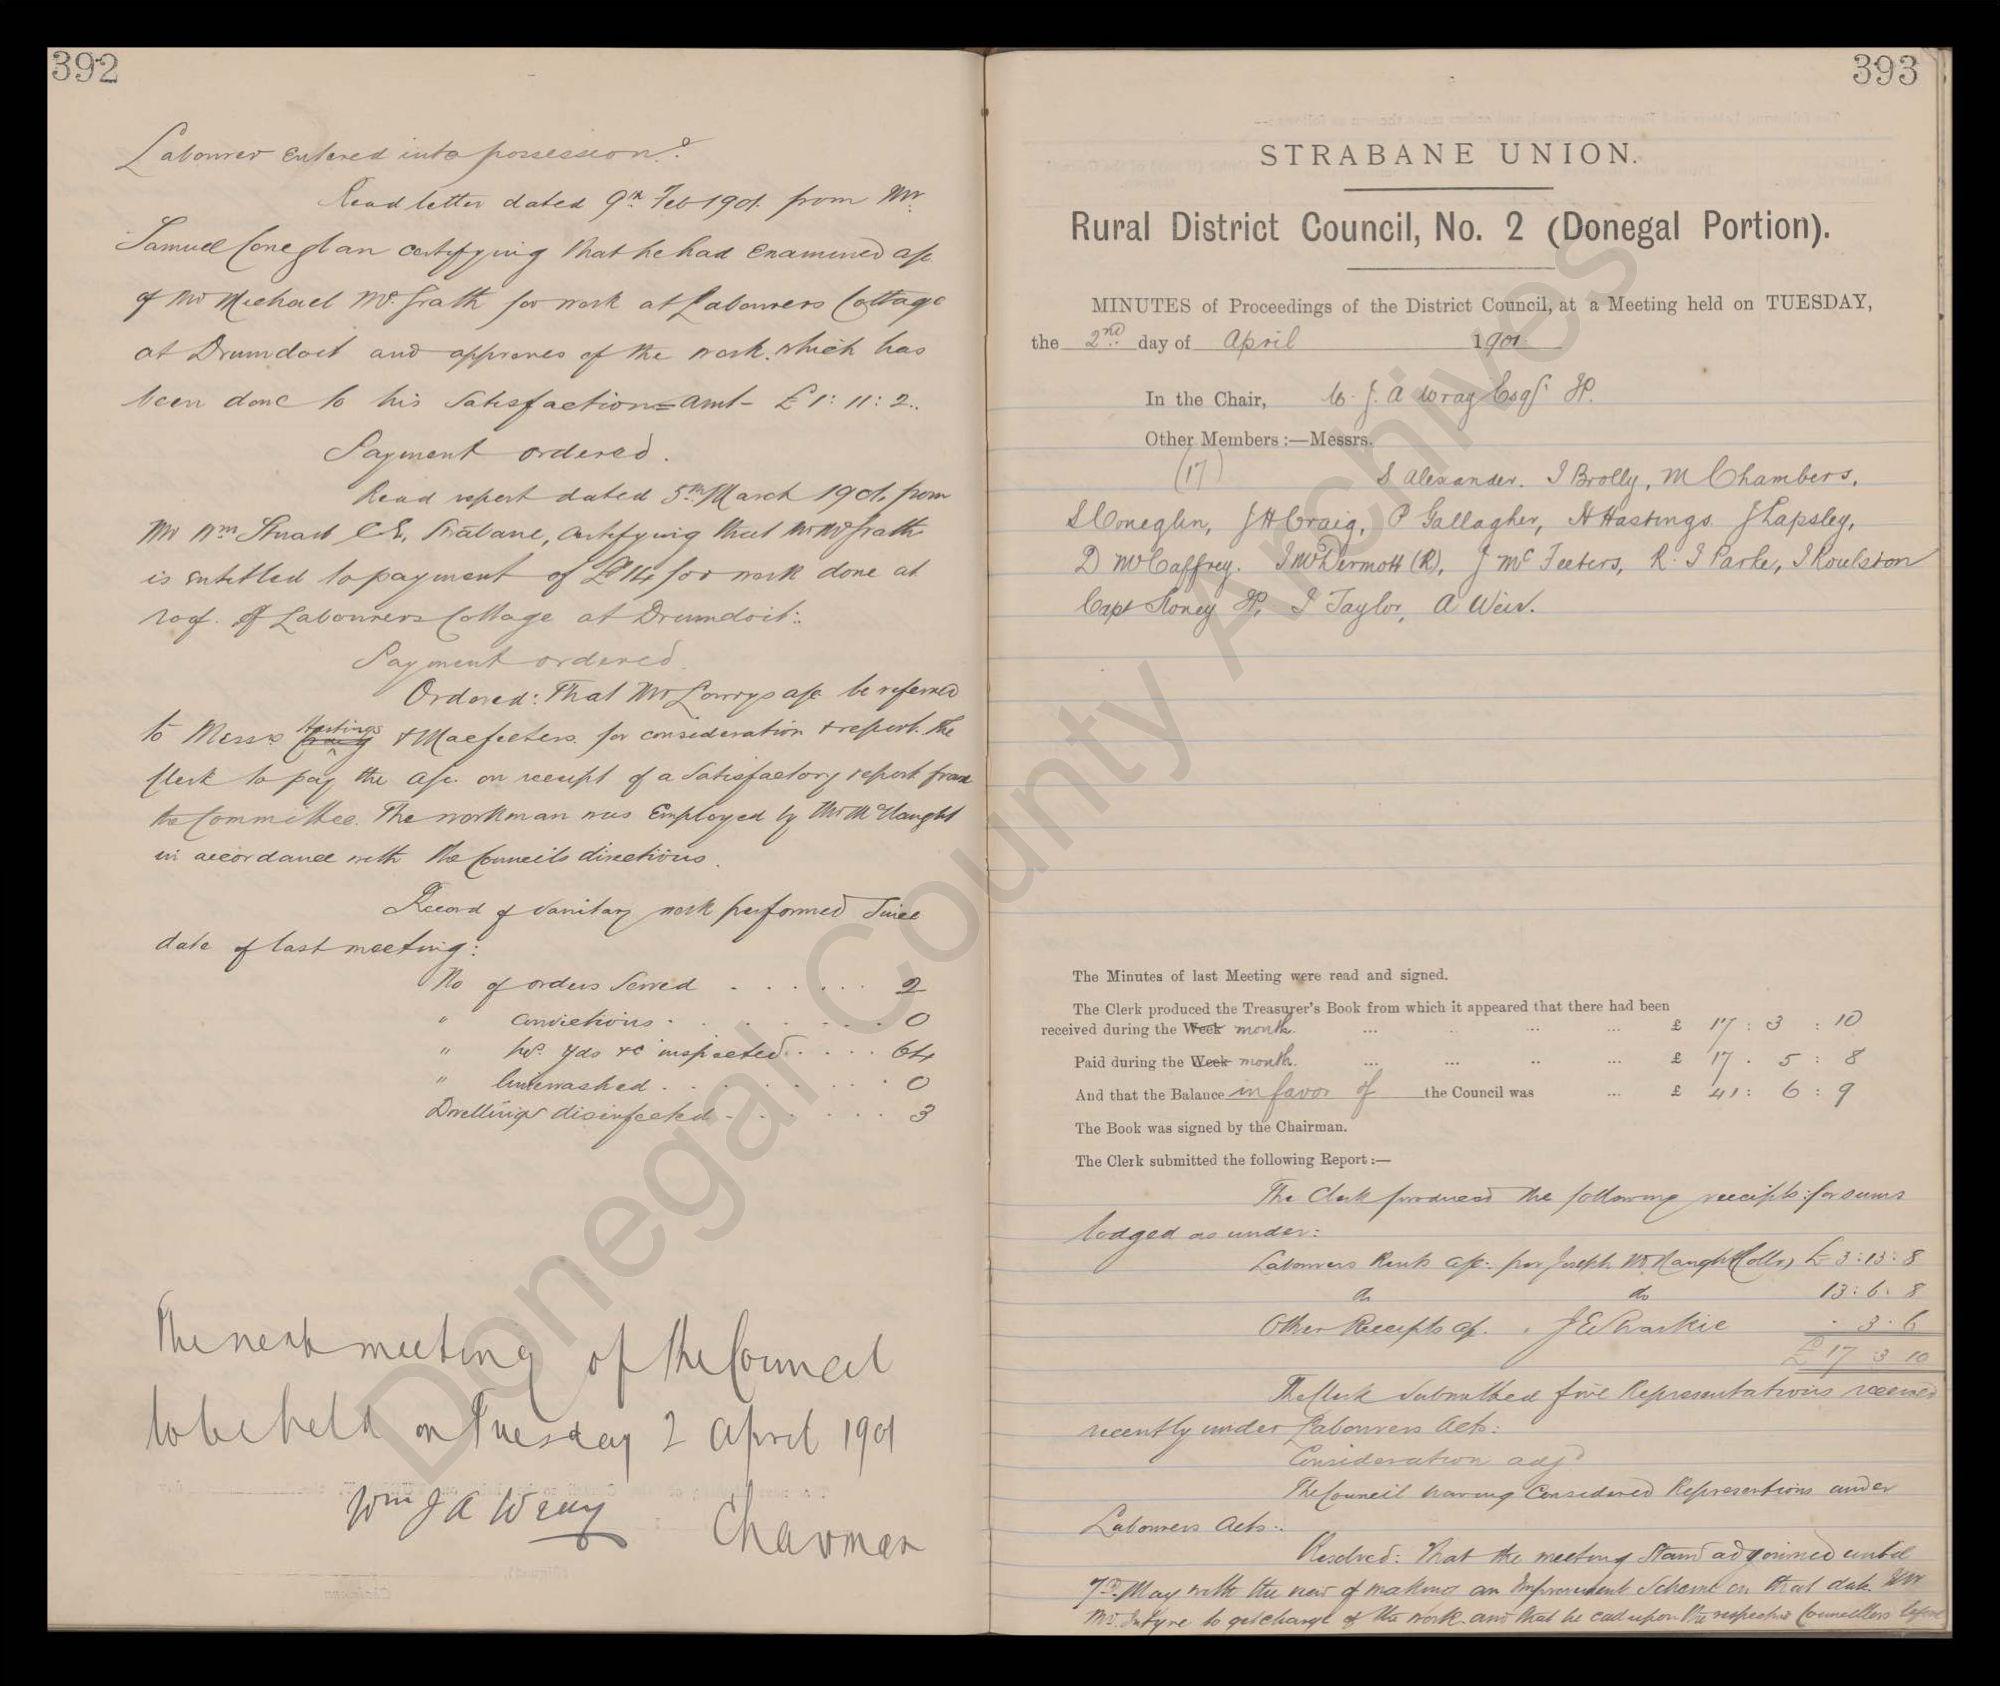 392
Labourer entered into possession?
Read letter dated 9th Feb 1901. from Mr
Samuel Coneglan certifying that he had examined a/c
of Mr Michael McGrath for work at Labourers Cottage
at Drumdoit and approves of the work which has
been done to his satisfaction = amt - £1:11:2..
Payment ordered.
Read report dated 5th March 1901, from
Mr Wm Stuart CE, Strabane, certifying that Mr McGrath
is entitled to payment of £14 for work done at
roof. of Labourers Cottage at Drumdoit:
Payment ordered.
Ordered: That Mr Lowrys a/c be referred
Hastings
to Messrs Craig & Macfeeters for consideration & report. The
Clerk to pay the a/c. on receipt of a satisfactory report from
the Committee. The workman was employed by Mr McNaught
in accordance with the Councils directions.
Record of sanitary work performed since
date of last meeting:
No of orders served . . . . . . 2
" convictions . . . . . . . 0
" hos. yds &c inspected . . . . 64
" limewashed . . . . . . . 0
Dwellings disinfected . . . . . . 3
The next meeting of the Council
to be held on Tuesday 2 April 1901
Wm J A Wray
Chairman
393
STRABANE UNION.
Rural District Council, No. 2 (Donegal Portion).
MINUTES of Proceedings of the District Council, at a Meeting held on TUESDAY,
the 2nd day of April 1901.
In the Chair, W. J. A Wray Esqr JP.
Other Members :—Messrs.
(17)
S Alexander. J Brolly, M Chambers,
S Coneglin, J H Craig, P Gallagher, H Hastings. J Lapsley,
D McCaffrey. J McDermott (R), J McFeeters, R. J Parke, J Roulston
Capt Stoney JP, J Taylor, A Weir.
The Minutes of last Meeting were read and signed.
The Clerk produced the Treasurer's Book from which it appeared that there had been
received during the Week month. ... ... ... £ 17 : 3 : 10
Paid during the Week month. ... ... .. ... £ 17 . 5 : 8
And that the Balance in favor of the Council was ... £ 41 : 6 : 9
The Book was signed by the Chairman.
The Clerk submitted the following Report :—
The Clerk produced the following receipts: for sums
lodged as under:
Labourers Rents a/c: per Joseph McNaught (Collr) £3:13:8
do do 13:6:8
Other Receipts a/c. " J E Sharkie . 3.6
£17 3 10
The Clerk submitted five Representations received
recently under Labourers Acts:
Consideration adjd
The Council having considered Representions under
Labourers Acts:.
Resolved: That the meeting stand adjourned until
7th May with the view of making an Improvement Scheme on that date Mr
McIntyre to get charge of the work. and that he call upon the respective Councillors before
Donegal County Archives